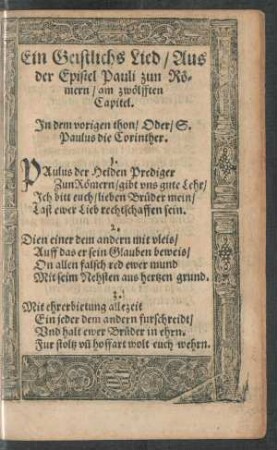 Ein Geistlichs Lied / Aus
der Epistel Pauli zun Rö-
mern / am zwölfften
Capitel.
In dem vorigen thon / Oder / S.
Paulus die Corinther.
1.
PAulus der Heiden Prediger
Zun Römern / gibt vns gute Lehr /
Ich bitt euch / lieben Brüder mein /
Last ewer Lieb rechtschaffen sein.
2.
Dien einer dem andern mit vleis /
Auff das er sein Glauben beweis /
On allen falsch red ewer mund
Mit seim Nehsten aus hertzen grund.
3.
Mit ehrerbietung allezeit
Ein jeder dem andern furschreidt /
Vnd halt ewer Brüder in ehrn.
Fur stoltz vñ hoffart wolt euch wehrn.